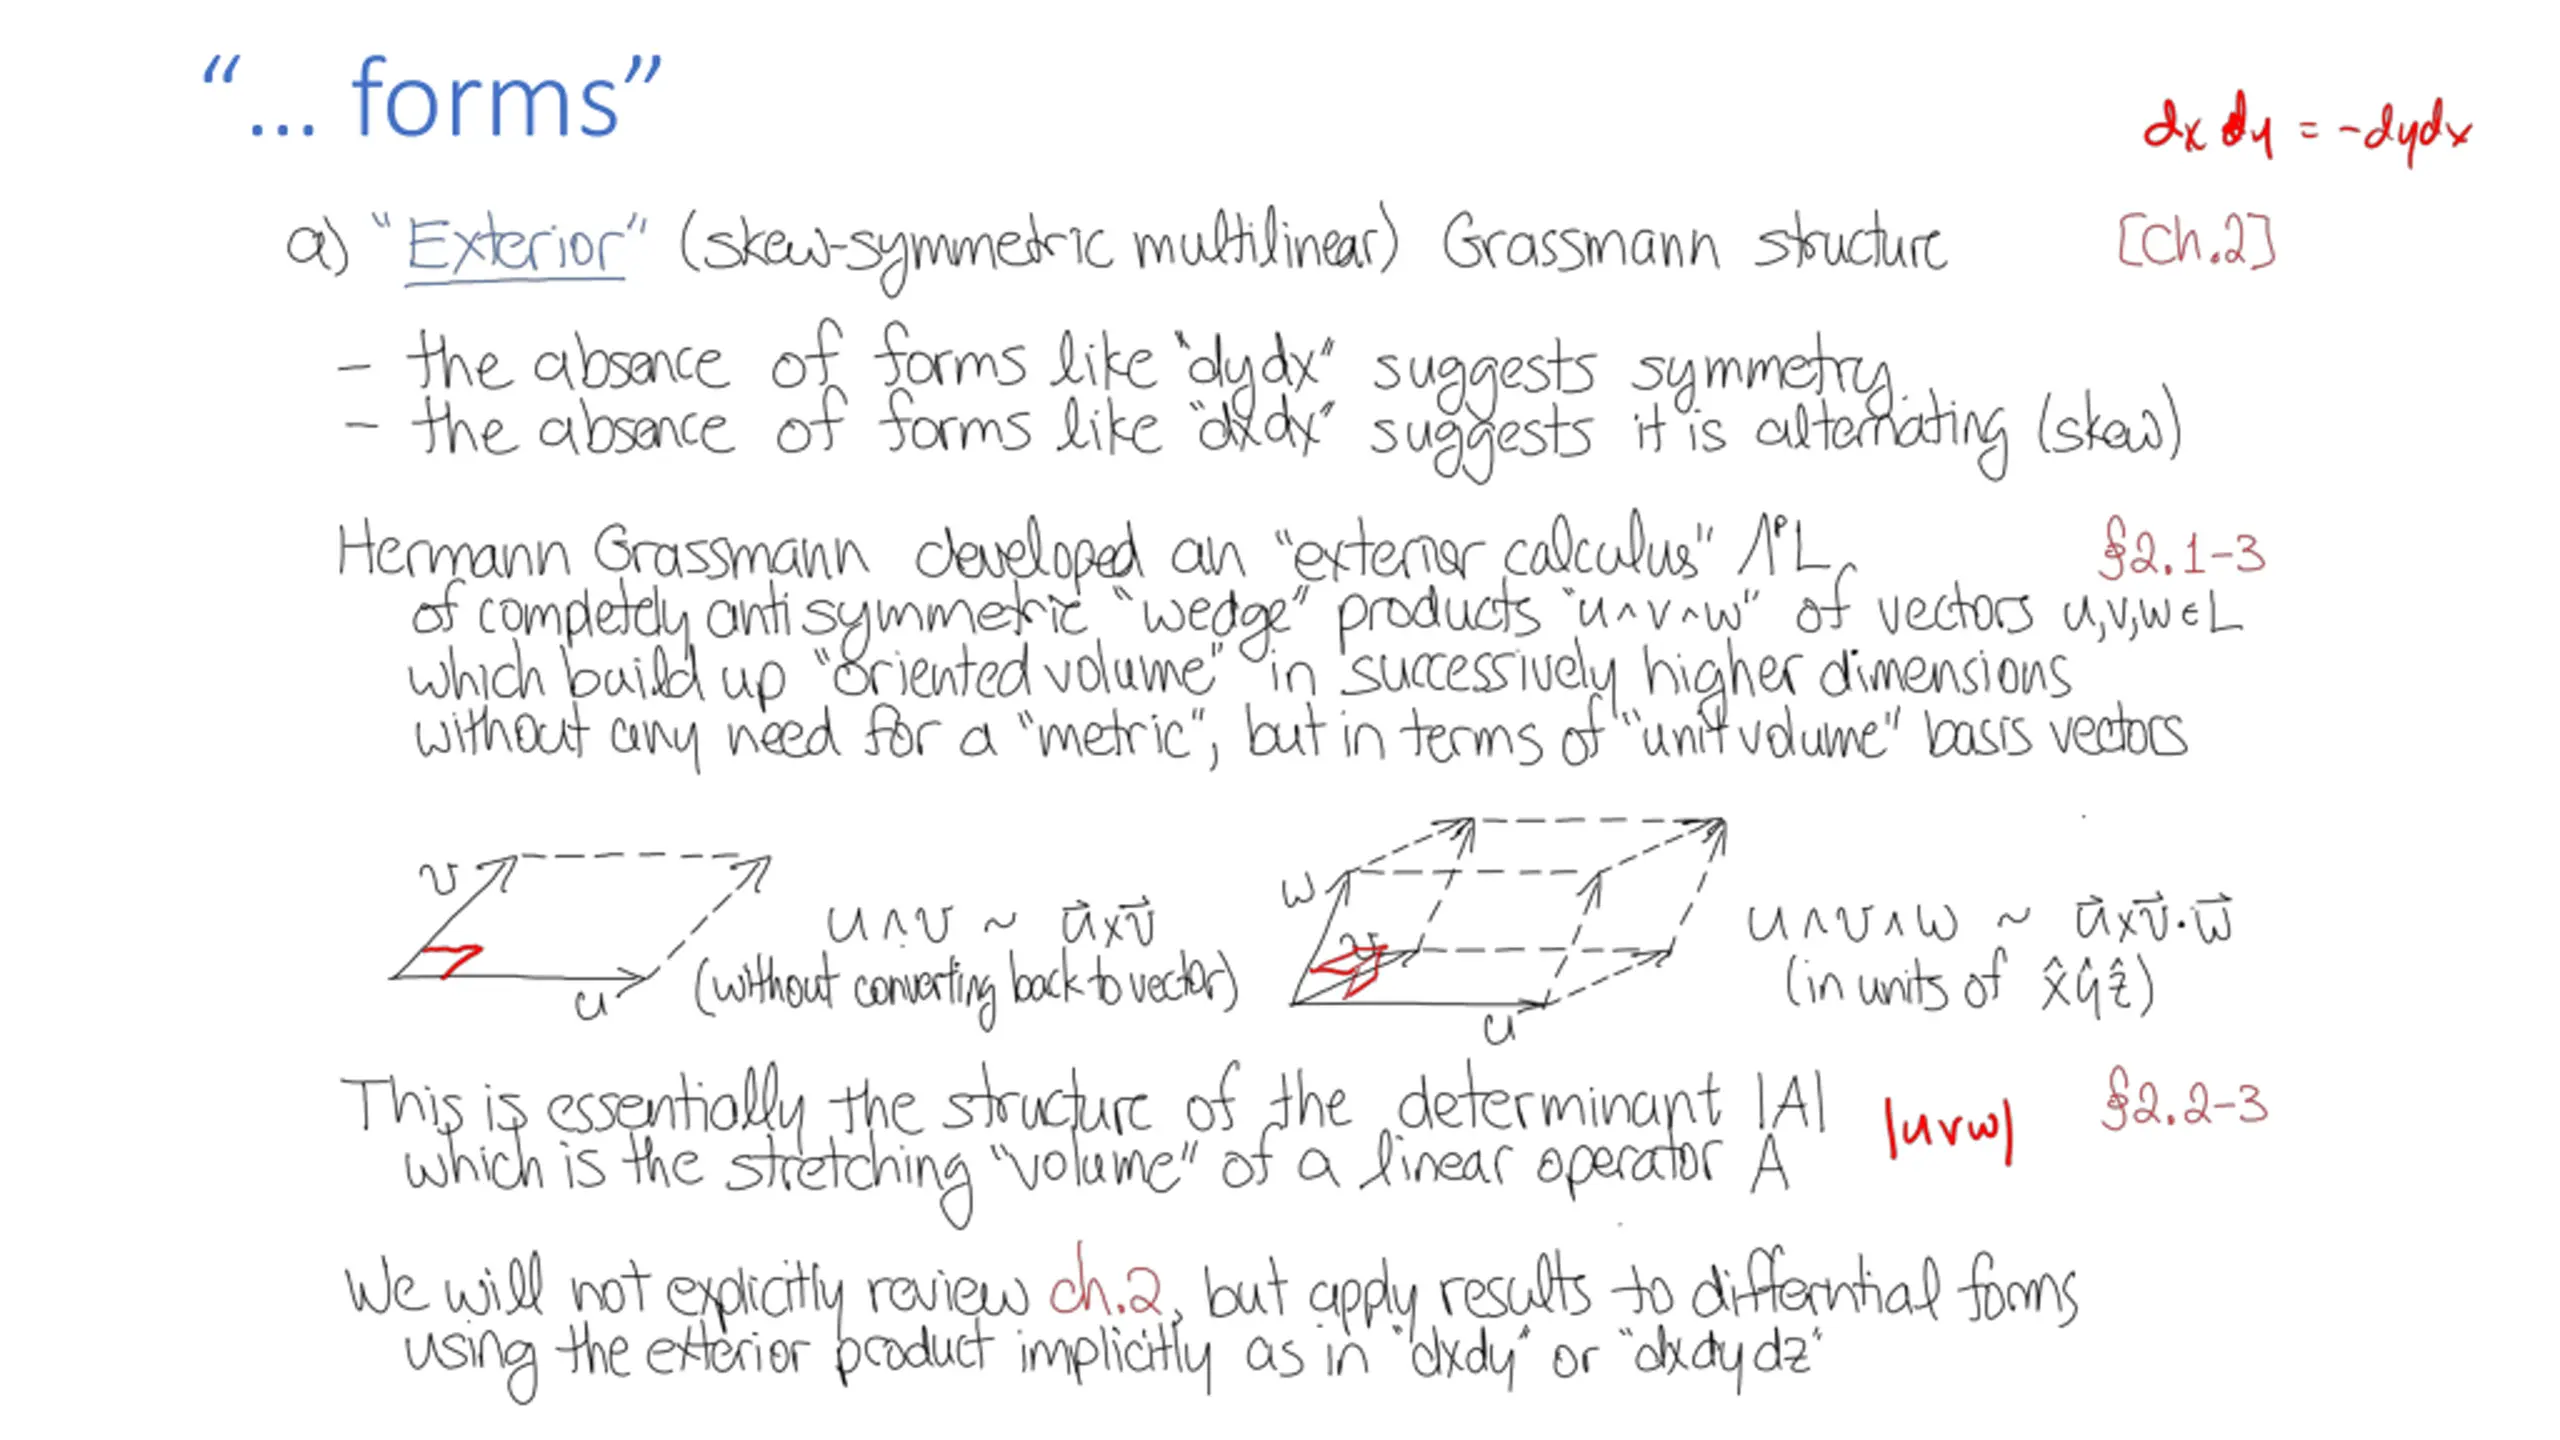 “... forms”
dx dy = -dydx
a) “Exterior” (skew-symmetric multilinear) Grassmann structure [Ch.2]
- the absence of forms like “dydx” suggests symmetry.
- the absence of forms like “dxdx” suggests it is alternating (skew)
Hermann Grassmann developed an “exterior calculus” ΛᵖL §2.1-3
of completely antisymmetric “wedge” products “u∧v∧w” of vectors u,v,w∈L
which build up “oriented volume” in successively higher dimensions
without any need for a “metric”, but in terms of “unit volume” basis vectors
v
u
u∧v ~ u⃗×v⃗
(without converting back to vector)
w
v
u
u∧v∧w ~ u⃗×v⃗·w⃗
(in units of x̂ŷẑ)
This is essentially the structure of the determinant |A| |uvw| §2.2-3
which is the stretching “volume” of a linear operator A
We will not explicitly review ch.2, but apply results to differntial forms
using the exterior product implicitly as in “dxdy” or “dxdydz”